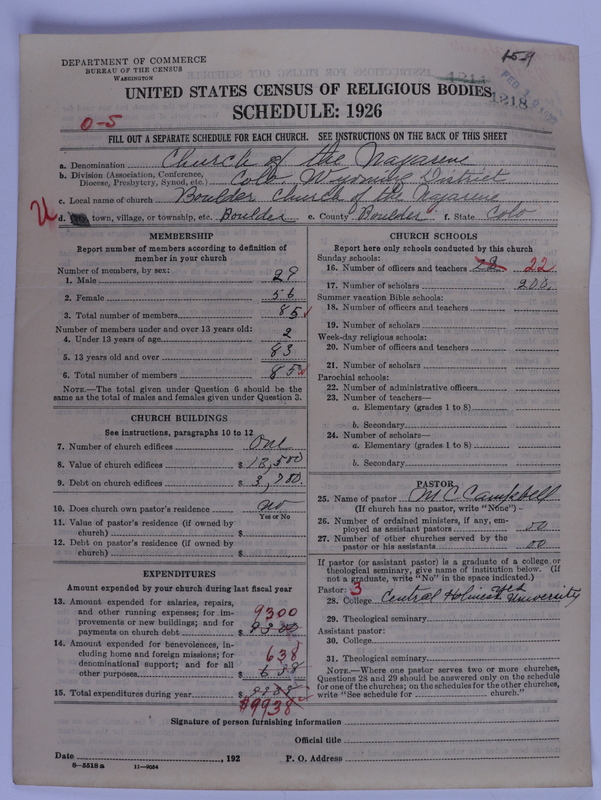 DEPARTMENT OF COMMERCE
BUREAU OF THE CENSUS
WASHINGTON
159
1211
1218
UNITED STATES CENSUS OF RELIGIOUS BODIES
SCHEDULE: 1926
0-5
FILL OUT A SEPARATE SCHEDULE FOR EACH CHURCH. SEE INSTRUCTIONS ON THE BACK OF THIS SHEET
a. Denomination Church of the Nazarene
b. Division (Association, Conference, Diocese, Presbytery, Synod, etc.) Colo Wyoming District
c. Local name of church Boulder Church of the Nazarene
U
d. town, village, or township, etc. Boulder e. County Boulder f. State Colo
MEMBERSHIP
Report number of members according to definition of
member in your church
Number of members, by sex:
1. Male 29
2. Female 56
3. Total number of members 85
Number of members under and over 13 years old:
4. Under 13 years of age 2
5. 13 years old and over 83
6. Total number of members 85
NOTE.—The total given under Question 6 should be
same as the total of males and females given under Question 3.
CHURCH BUILDINGS
See instructions, paragraphs 10 to 12
7. Number of church edifices One
8. Value of church edifices $ 18,500
9. Debt on church edifices $ 3,700.
10. Does church own pastor's residence no
Yes or No
11. Value of pastor's residence (if owned by
church) $
12. Debt on pastor's residence (if owned by
church) $
EXPENDITURES
Amount expended by your church during last fiscal year
13. Amount expended for salaries, repairs,
and other running expenses; for im-
provements or new buildings; and for
payments on church debt $ 9300
9300
14. Amount expended for benevolences, in-
cluding home and foreign missions; for
denominational support; and for all
other purposes $ 638
638
15. Total expenditures during year $
$9938
CHURCH SCHOOLS
Report here only schools conducted by this church
Sunday schools:
16. Number of officers and teachers 22 22
17. Number of scholars 200.
Summer vacation Bible schools:
18. Number of officers and teachers
19. Number of scholars
Week-day religious schools:
20. Number of officers and teachers
21. Number of scholars
Parochial schools:
22. Number of administrative officers
23. Number of teachers—
a. Elementary (grades 1 to 8)
b. Secondary
24. Number of scholars—
a. Elementary (grades 1 to 8)
b. Secondary
PASTOR
25. Name of pastor M C Campbell
(If church has no pastor, write "None")
26. Number of ordained ministers, if any, em-
ployed as assistant pastors 00
27. Number of other churches served by the
pastor or his assistants 00
If pastor (or assistant pastor) is a graduate of a college or
theological seminary, give name of institution below. (If
not a graduate, write "No" in the space indicated.)
Pastor: 3
28. College Central Holiness University
29. Theological seminary
Assistant pastor:
30. College
31. Theological seminary
NOTE.—Where one pastor serves two or more churches,
Questions 28 and 29 should be answered only on the schedule
for one of the churches; on the schedules for the other churches,
write "See schedule for church."
Signature of person furnishing information
Official title
Date , 192 P. O. Address
8-5518 a 11-9034